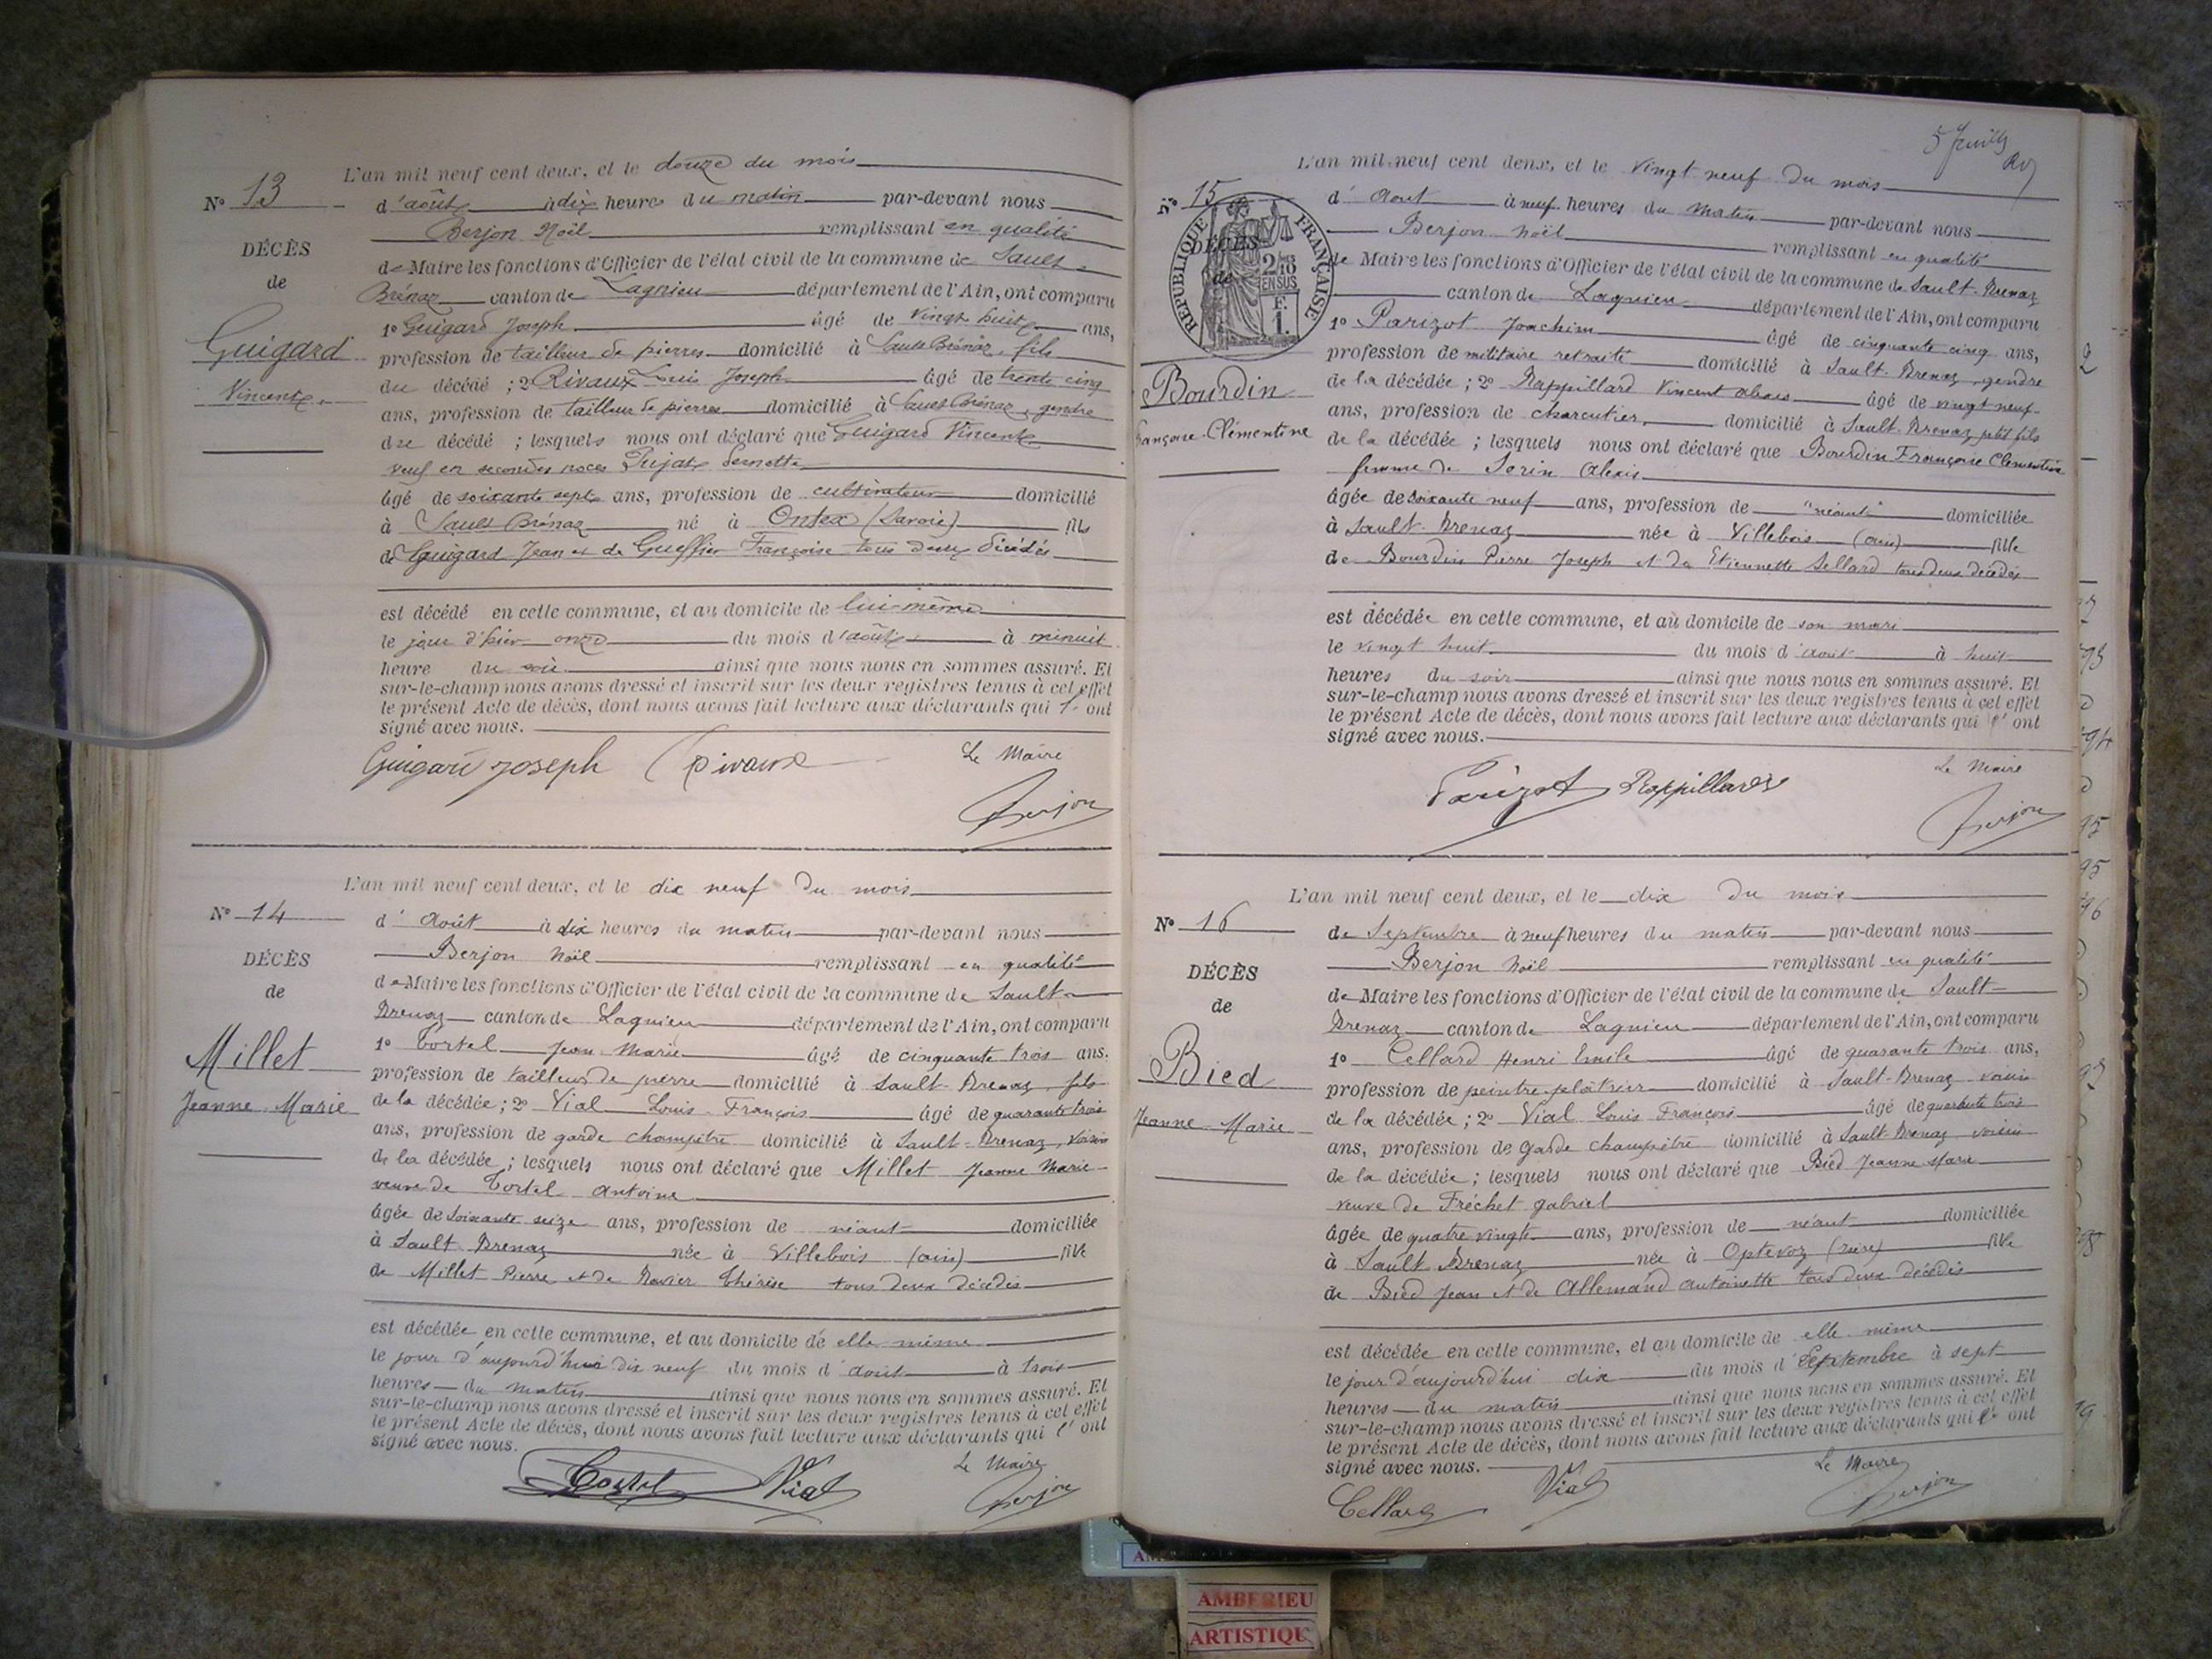 L'an mil neuf cent deux, et le douze du mois
N° 13
d'août à dix heures du matin par-devant nous
Berjon Noël remplissant en qualité
DÉCÈS
de Maire les fonctions d'Officier de l'état civil de la commune de Sault
de
Brénaz canton de Lagnieu département de l'Ain, ont comparu
1° Guigard Joseph âgé de vingt huit ans,
Guigard
profession de tailleur de pierres domicilié à Sault Brénaz, fils
du décédé ; 2° Rivaux Louis Joseph âgé de trente cinq
Vincent
ans, profession de tailleur de pierres domicilié à Sault Brénaz, gendre
du décédé ; lesquels nous ont déclaré que Guigard Vincent
veuf en secondes noces
âgé de soixante sept ans, profession de cultivateur domicilié
à Sault Brénaz né à Ontex (Savoie) fils
de Guigard Jean et de Françoise tous deux décédés
est décédé en cette commune, et au domicile de lui-même
le jour d'hier onze du mois d'août à minuit
heure du soir ainsi que nous nous en sommes assuré. Et
sur-le-champ nous avons dressé et inscrit sur les deux registres tenus à cet effet
le présent Acte de décès, dont nous avons fait lecture aux déclarants qui l' ont
signé avec nous.
Guigard Joseph Rivaux Le Maire
Berjon
L'an mil neuf cent deux, et le dix neuf du mois
N° 14
d' Août à dix heures du matin par-devant nous
Berjon Noël remplissant en qualité
DÉCÈS
de Maire les fonctions d'Officier de l'état civil de la commune de Sault
de
Brenaz canton de Lagnieu département de l'Ain, ont comparu
1° Tortel Jean Marie âgé de cinquante trois ans,
Millet
profession de tailleur de pierre domicilié à Sault-Brenaz fils
Jeanne Marie
de la décédée ; 2° Vial Louis François âgé de quarante trois
ans, profession de garde champêtre domicilié à Sault-Brenaz, voisin
de la décédée ; lesquels nous ont déclaré que Millet Jeanne Marie
veuve de Tortel Antoine
âgée de soixante seize ans, profession de néant domiciliée
à Sault Brenaz née à Villebois (ain) fille
de Millet Pierre et de Ravier Thérèse tous deux décédés
est décédée en cette commune, et au domicile de elle même
le jour d'aujourd'hui dix neuf du mois d'août à trois
heures du matin ainsi que nous nous en sommes assuré. Et
sur-le-champ nous avons dressé et inscrit sur les deux registres tenus à cet effet
le présent Acte de décès, dont nous avons fait lecture aux déclarants qui l' ont
signé avec nous.
Le Maire
Tortel Vial Berjon
5
L'an mil neuf cent deux, et le vingt neuf du mois
N° 15
d' Aout à neuf heures du matin par-devant nous
Berjon Noël remplissant en qualité
RÉPUBLIQUE FRANÇAISE
2/10 EN SUS
F. 1.
DÉCÈS
de Maire les fonctions d'Officier de l'état civil de la commune de Sault-Brenaz
de
canton de Lagnieu département de l'Ain, ont comparu
1° Parizot Joachim âgé de cinquante cinq ans,
profession de militaire retraité domicilié à Sault-Brenaz, gendre
Bourdin
de la décédée ; 2° Rappillard Vincent Alexis âgé de vingt neuf
ans, profession de charcutier, domicilié à Sault-Brenaz, petit fils
Françoise Clémentine
de la décédée ; lesquels nous ont déclaré que Bourdin Françoise Clémentine
femme de Sorin Alexis
âgée de soixante neuf ans, profession de "néant" domiciliée
à Sault-Brenaz née à Villebois (ain) fille
de Bourdin Pierre Joseph et de Etiennette Sellard tous deux décédés
est décédée en cette commune, et au domicile de son mari
le vingt huit du mois d'aout à huit
heures du soir ainsi que nous nous en sommes assuré. Et
sur-le-champ nous avons dressé et inscrit sur les deux registres tenus à cet effet
le présent Acte de décès, dont nous avons fait lecture aux déclarants qui l' ont
signé avec nous.
Le Maire
Parizot Rappillard
Berjon
L'an mil neuf cent deux, et le dix du mois
N° 16
de Septembre à neuf heures du matin par-devant nous
Berjon Noël remplissant en qualité
DÉCÈS
de Maire les fonctions d'Officier de l'état civil de la commune de Sault-
de
Brenaz canton de Lagnieu département de l'Ain, ont comparu
1° Cellard Henri Emile âgé de quarante trois ans,
Bied
profession de peintre-plâtrier domicilié à Sault-Brenaz voisin
Jeanne Marie
de la décédée ; 2° Vial Louis François âgé de quarante trois
ans, profession de garde champêtre domicilié à Sault-Brenaz voisin
de la décédée ; lesquels nous ont déclaré que Bied Jeanne Marie
veuve de Fréchet Gabriel
âgée de quatre vingts ans, profession de néant domiciliée
à Sault Brenaz née à Optevoz (isère) fille
de Bied Jean et de Allemand Antoinette tous deux décédés
est décédée en cette commune, et au domicile de elle même
le jour d'aujourd'hui dix du mois d Septembre à sept
heures du matin ainsi que nous nous en sommes assuré. Et
sur-le-champ nous avons dressé et inscrit sur les deux registres tenus à cet effet
le présent Acte de décès, dont nous avons fait lecture aux déclarants qui l' ont
signé avec nous.
Le Maire
Cellard Vial Berjon
AMBERIEU
ARTISTIQU